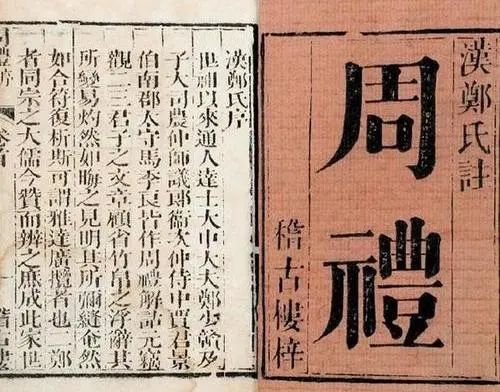 漢鄭氏註
周禮
稽古樓梓
漢鄭氏序
世祖以來通人達士大中大夫鄭少贑及
子大司農仲師議郎衞次仲侍中賈君景
伯南郡太守馬季長皆作周禮解詁元竊
觀二三君子之文章顧省竹帛之浮辭其
所變易灼然如晦之見明其所彌縫奄然
如合符復析斯可謂雅達廣攬者也二鄭
者同宗之大儒今贊而辨之庶成此家世
卷首
稽古樓